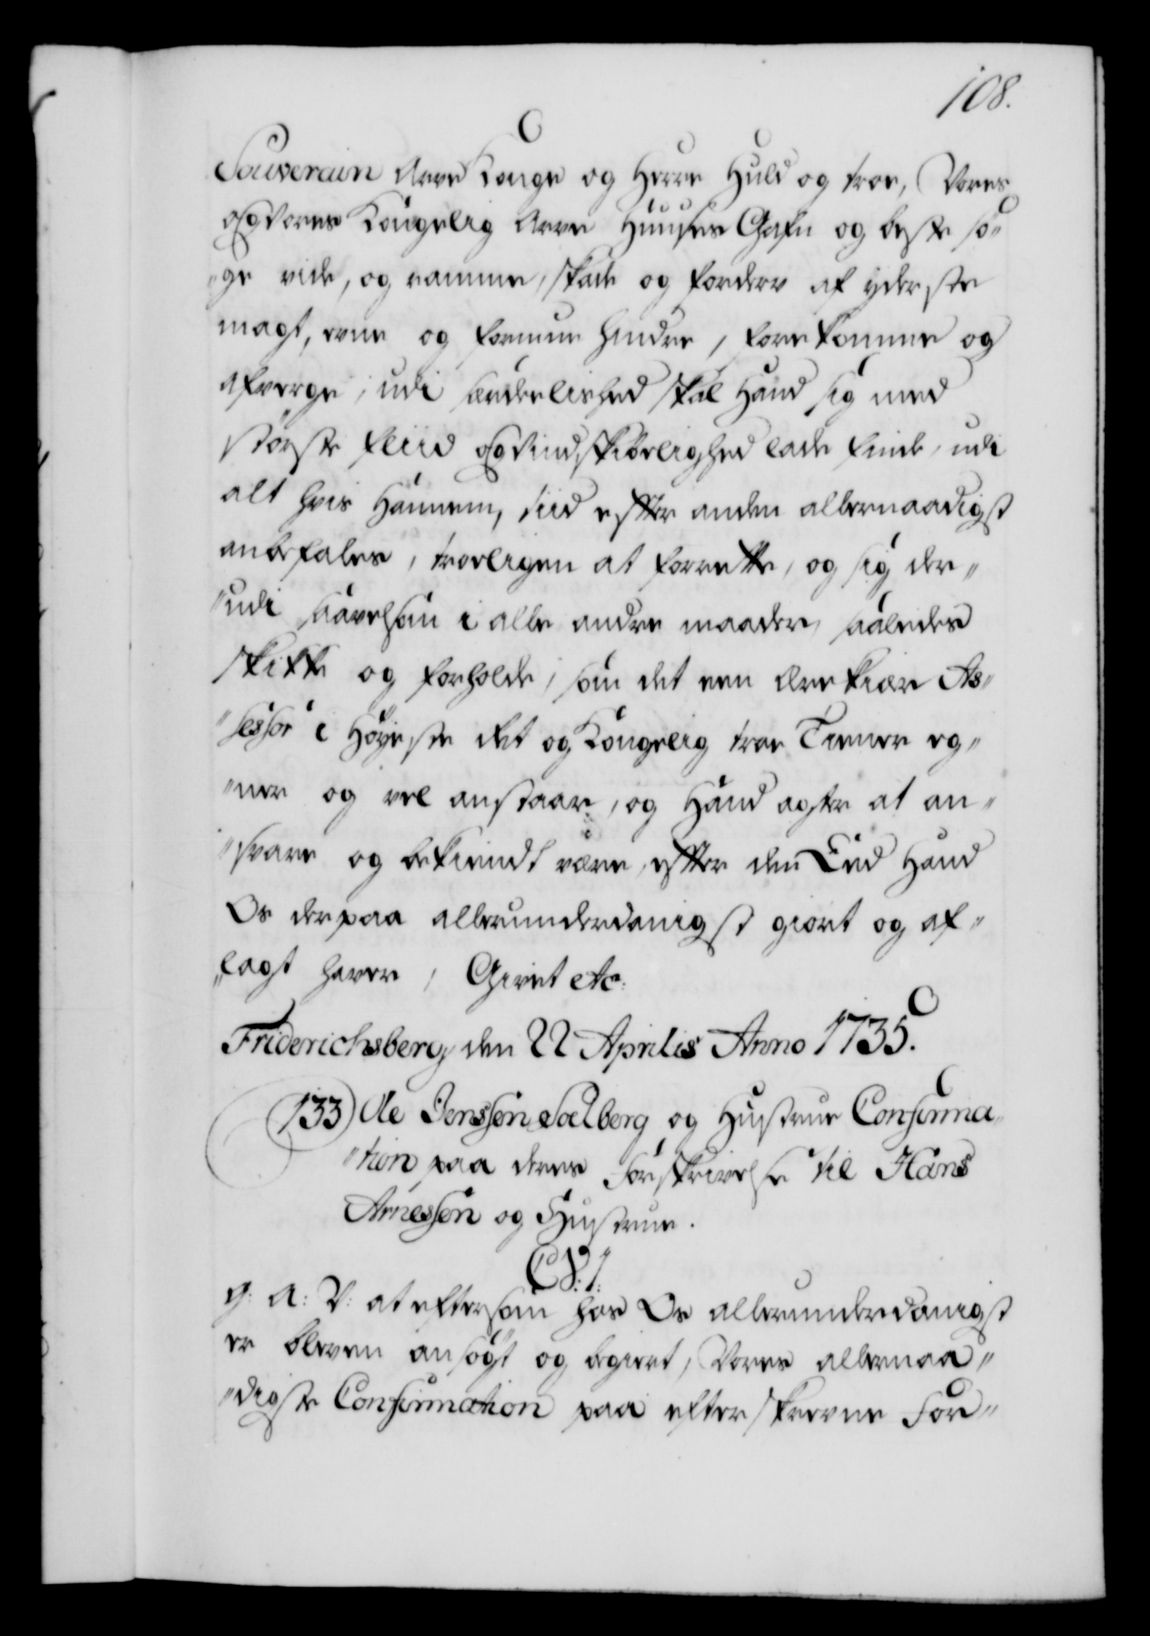 108.
Souverain Arve Konge og Herre Huld og troe, Vores
og Vores Kongelig Arve Huuses Gafn og beste sø„
„ge vide, og ramme, skade og forderv af yderste
magt, evne og formue hindre, forekomme og
afverge, udi særdelished skal Hand sig med
største fliid og Vindskibelighed lade finde, udi
alt hvis Hannem, tiid efter anden allernaadigst
anbefales, troeligen at forrette, og sig der„
„udi saavelsom i alle andre maader, saaledes
skikke og forholde, som det een ærekiær As„
„sessor i Høyeste Ret og Kongelig troe Tiener eg„
„ner og vel anstaar, og Hand agter at an„
„svare og bekiendt være, efter den Eed Hand
Os derpaa allerunderdanigst giort og af„
„lagt haver, Givet etc:
Friderichsberg den 22 Aprilis Anno 1735.
133) Ole Jenssen Soelberg og Hustrue Confirma„
„tion paa deres Forskrivelse til Hans
Arnessen og Hustrue.
C. VI.
G. A: V: at eftersom hos Os allerunderdanigst
er bleven ansøgt og begiert, Vores allernaa„
„digste Confirmation paa efterskrevne For„